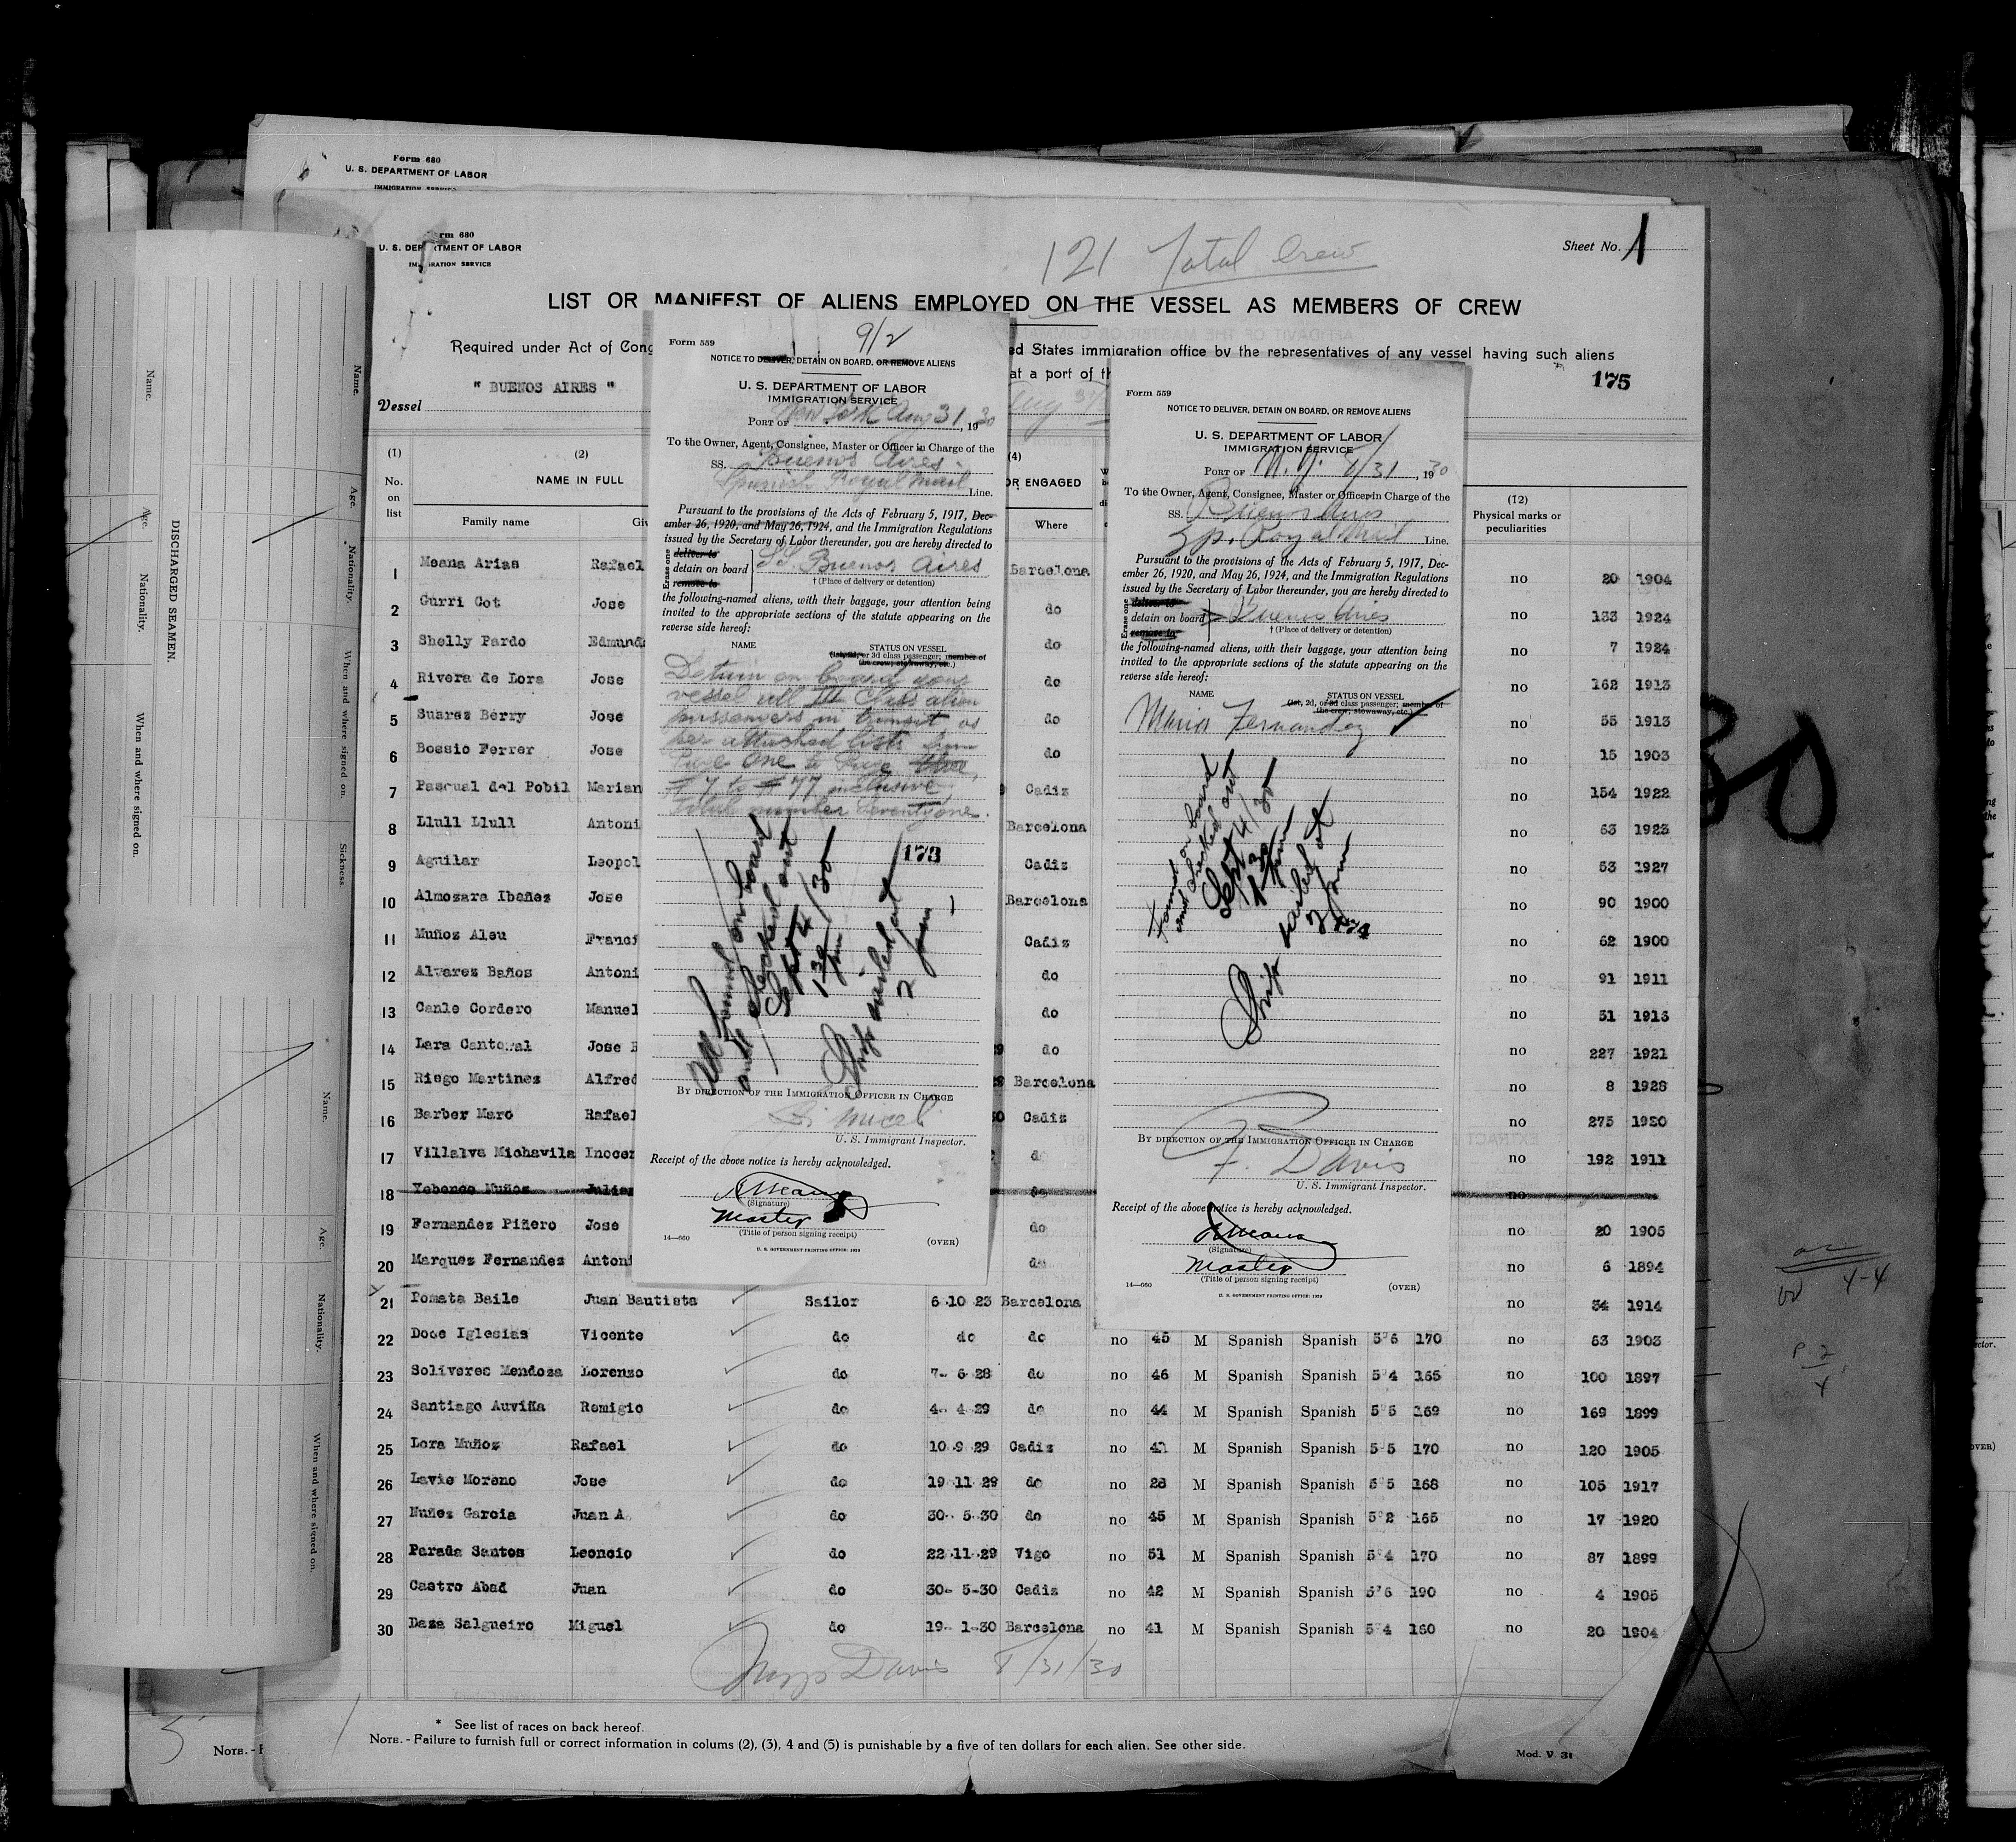 Form 680
U. S. DEPARTMENT OF LABOR
IMMIGRATION SERVICE
rm 680
U. S. DEP TMENT OF LABOR
IM IGRATION SERVICE
121 Total Crew
Sheet No. 1
LIST OR MANIFEST OF ALIENS EMPLOYED ON THE VESSEL AS MEMBERS OF CREW
Required under Act of Cong
ed States immigration office by the representatives of any vessel having such aliens
at a port of th
175
Vessel " BUENOS AIRES "
(1) (2) (4) (12)
No. on list
NAME IN FULL
OR ENGAGED
Physical marks or peculiarities
Family name Gi Where
1 Meana Arias Rafael Barcelona no 20 1904
2 Gurri Got Jose do no 133 1924
3 Shelly Pardo Edmund do no 7 1924
4 Rivera de Lora Jose do no 162 1913
5 Suarez Berry Jose do no 55 1913
6 Bossio Ferrer Jose do no 15 1903
7 Pascual del Pobil Marian Cadiz no 154 1922
8 Llull Llull Antoni Barcelona no 53 1923
9 Aguilar Leopol Cadiz no 53 1927
10 Almozara Ibañez Jose Barcelona no 90 1900
11 Muñoz Aleu Franci Cadiz no 62 1900
12 Alvarez Baños Antoni do no 91 1911
13 Canle Cordero Manuel do no 51 1913
14 Lara Cantoral Jose do no 227 1921
15 Riego Martinez Alfred Barcelona no 8 1928
16 Barber Maro Rafael Cadiz no 275 1920
17 Villalva Michavila Inocen d no 192 1911
18 Yebenes Muñoz Julia do no
19 Fernandez Piñero Jose do no 20 1905
20 Marquez Fernandez Antoni do no 6 1894
21 Pomata Baile Juan Bautista Sailor 6 10 23 Barcelona no 34 1914
22 Doce Iglesias Vicente do do do no 45 M Spanish Spanish 5 6 170 no 63 1903
23 Soliveres Mendoza Lorenzo do 7- 6 28 do no 46 M Spanish Spanish 5 4 165 no 100 1897
24 Santiago Auviña Remigio do 4- 4 29 do no 44 M Spanish Spanish 5 5 169 no 169 1899
25 Lora Muñoz Rafael do 10 9 29 Cadiz no 41 M Spanish Spanish 5 5 170 no 120 1905
26 Lavie Moreno Jose do 19 11 29 do no 28 M Spanish Spanish 5 5 168 no 105 1917
27 Nuñez Garcia Juan A. do 30- 5 30 do no 45 M Spanish Spanish 5 2 165 no 17 1920
28 Parada Santos Leoncio do 22 11 29 Vigo no 51 M Spanish Spanish 5 4 170 no 87 1899
29 Castro Abad Juan do 30- 5-30 Cadiz no 42 M Spanish Spanish 5 6 190 no 4 1905
30 Daza Salgueiro Miguel do 19- 1-30 Barcelona no 41 M Spanish Spanish 5 4 160 no 20 1904
Davis 8/31/30
* See list of races on back hereof.
NOTE. - Failure to furnish full or correct information in colums (2), (3), 4 and (5) is punishable by a five of ten dollars for each alien. See other side.
Mod. V 31
9/2
Form 559
NOTICE TO DELIVER, DETAIN ON BOARD, OR REMOVE ALIENS
U. S. DEPARTMENT OF LABOR
IMMIGRATION SERVICE
PORT OF New York Aug 31, 1930
To the Owner, Agent, Consignee, Master or Officer in Charge of the
SS. Buenos Aires
Spanish Royal Mail Line.
Pursuant to the provisions of the Acts of February 5, 1917, Dec-
ember 26, 1920, and May 26, 1924, and the Immigration Regulations
issued by the Secretary of Labor thereunder, you are hereby directed to
Erase one
deliver to
detain on board
remove to
SS. Buenos Aires
† (Place of delivery or detention)
the following-named aliens, with their baggage, your attention being
invited to the appropriate sections of the statute appearing on the
reverse side hereof:
NAME STATUS ON VESSEL
(1st, 2d, or 3d class passenger; member of
the crew; stowaway, etc.)
Detain on board your
vessel all III Class alien
passengers in transit as
per attached lists from
Page One to Page three,
# 7 to # 77 inclusive,
total number seventy one.
173
All found on board
and checked out
Sept 4/30
1 30 pm
Ship sailed at
2 pm
BY DIRECTION OF THE IMMIGRATION OFFICER IN CHARGE
U. S. Immigrant Inspector.
Receipt of the above notice is hereby acknowledged.
RMeana
(Signature)
Master
(Title of person signing receipt)
14—660
U. S. GOVERNMENT PRINTING OFFICE: 1929
(OVER)
Form 559
NOTICE TO DELIVER, DETAIN ON BOARD, OR REMOVE ALIENS
U. S. DEPARTMENT OF LABOR
IMMIGRATION SERVICE
PORT OF N. Y. 8/31, 1930
To the Owner, Agent, Consignee, Master or Officer in Charge of the
SS. Buenos Aires
Sp. Royal Mail Line.
Pursuant to the provisions of the Acts of February 5, 1917, Dec-
ember 26, 1920, and May 26, 1924, and the Immigration Regulations
issued by the Secretary of Labor thereunder, you are hereby directed to
Erase one
deliver to
detain on board
remove to
Buenos Aires
† (Place of delivery or detention)
the following-named aliens, with their baggage, your attention being
invited to the appropriate sections of the statute appearing on the
reverse side hereof:
NAME STATUS ON VESSEL
(1st, 2d, or 3d class passenger; member of
the crew; stowaway, etc.)
Maria Fernandez
Found on board
and checked out
Sept 4/30
1 30 pm
Ship sailed at
2 pm
174
BY DIRECTION OF THE IMMIGRATION OFFICER IN CHARGE
F. Davis
U. S. Immigrant Inspector.
Receipt of the above notice is hereby acknowledged.
RMeana
(Signature)
Master
(Title of person signing receipt)
14—660
U. S. GOVERNMENT PRINTING OFFICE: 1929
(OVER)
DISCHARGED SEAMEN.
Name.
Age.
Nationality.
When and where signed on.
Name.
Age.
Nationality.
When and where signed on.
Sickness.
Name.
Age.
Nationality.
When and where signed on.
NOTE. - F
4-4